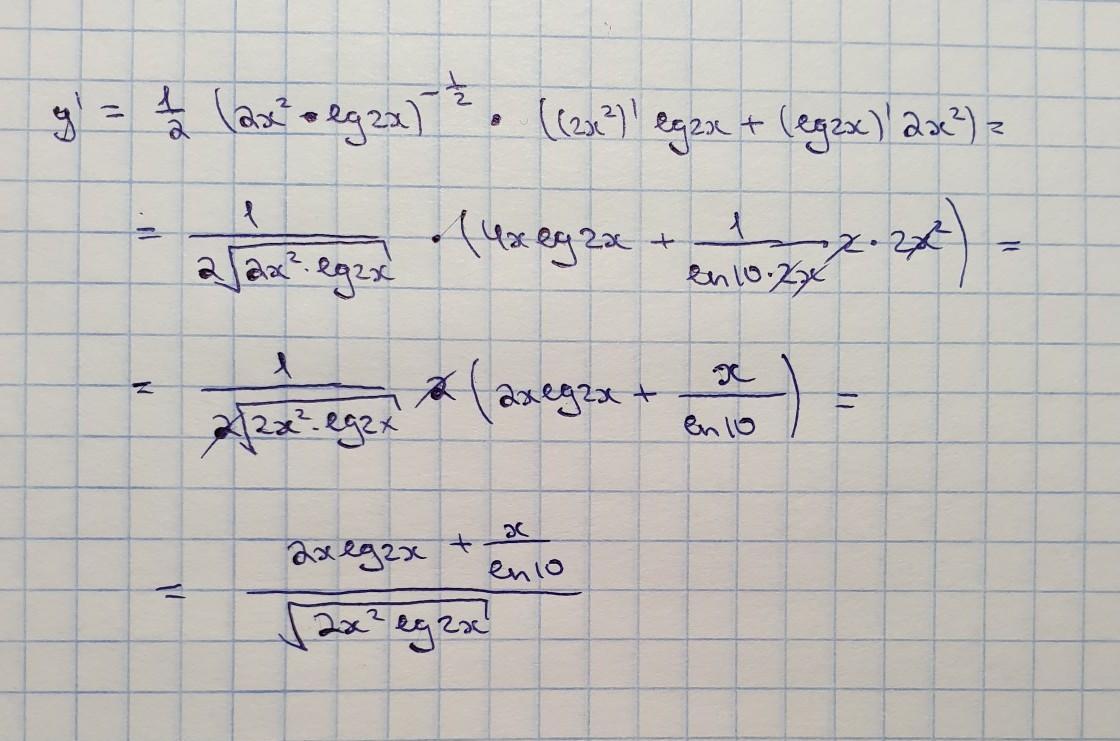 y' = 1/2 (2x² • lg2x)^(-1/2) • ((2x²)' lg2x + (lg2x)' 2x²) =
= 1/(2√(2x² · lg2x)) · (4xlg2x + 1/(ln10·2x) · 2 · 2x²) =
= 1/(2√(2x² · lg2x)) 2 (2xlg2x + x/ln10) =
= (2xlg2x + x/ln10)/√(2x² lg2x)